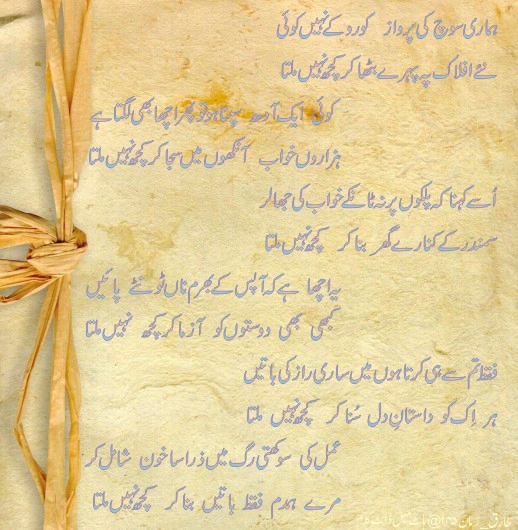 ہماری سوچ کی پرواز کو روکے نہیں کوئی
نئے افلاک پہ پہرے بٹھا کر کچھ نہیں ملتا
کوئی ایک آدھ سپنا ہو تو پھر اچھا بھی لگتا ہے
ہزاروں خواب آنکھوں میں سجا کر کچھ نہیں ملتا
اُسے کہنا کہ پلکوں پر نہ ٹانکے خواب کی جھالر
سمندر کے کنارے گھر بنا کر کچھ نہیں ملتا
یہ اچھا ہے کہ آپس کے بھرم ناں ٹوٹنے پائیں
کبھی بھی دوستوں کو آزما کر کچھ نہیں ملتا
فقط تم سے ہی کرتا ہوں میں ساری راز کی باتیں
ہر اِک کو داستانِ دل سُنا کر کچھ نہیں ملتا
عمل کی سوکھتی رگ میں ذرا سا خون شامل کر
مرے ہمدم فقط باتیں بنا کر کچھ نہیں ملتا